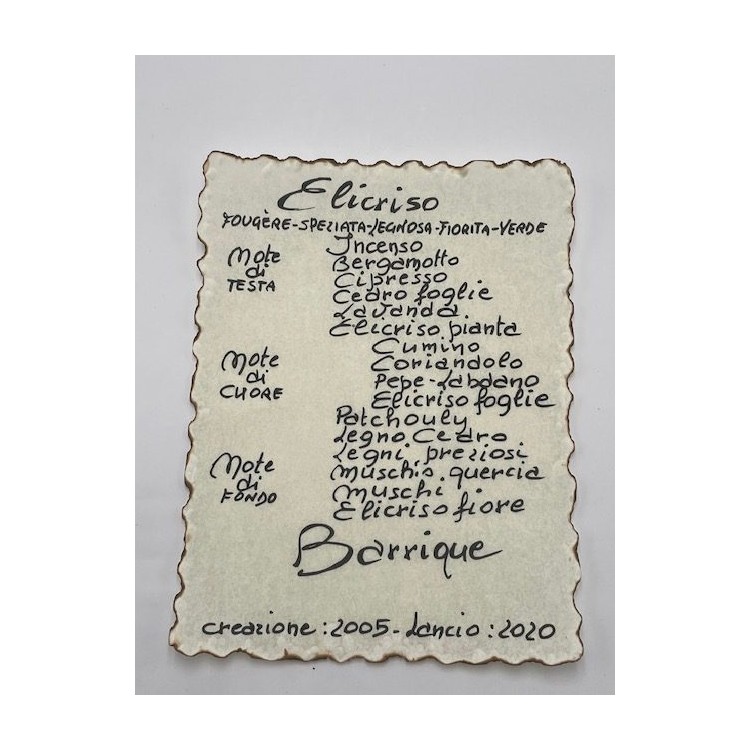 Elicriso
FOUGÈRE-SPEZIATA-LEGNOSA-FIORITA-VERDE
Note di TESTA
Incenso
Bergamotto
Cipresso
Cedro foglie
Lavanda.
Elicriso pianta
Note di CUORE
Cumino
Coriandolo
Pepe-Labdano
Elicriso foglie
Note di FONDO
Patchouly
Legno. Cedro.
Legni. preziosi
Muschio. quercia
Muschi.
Elicriso fiore
Barrique
creazione: 2005- Lancio: 2020